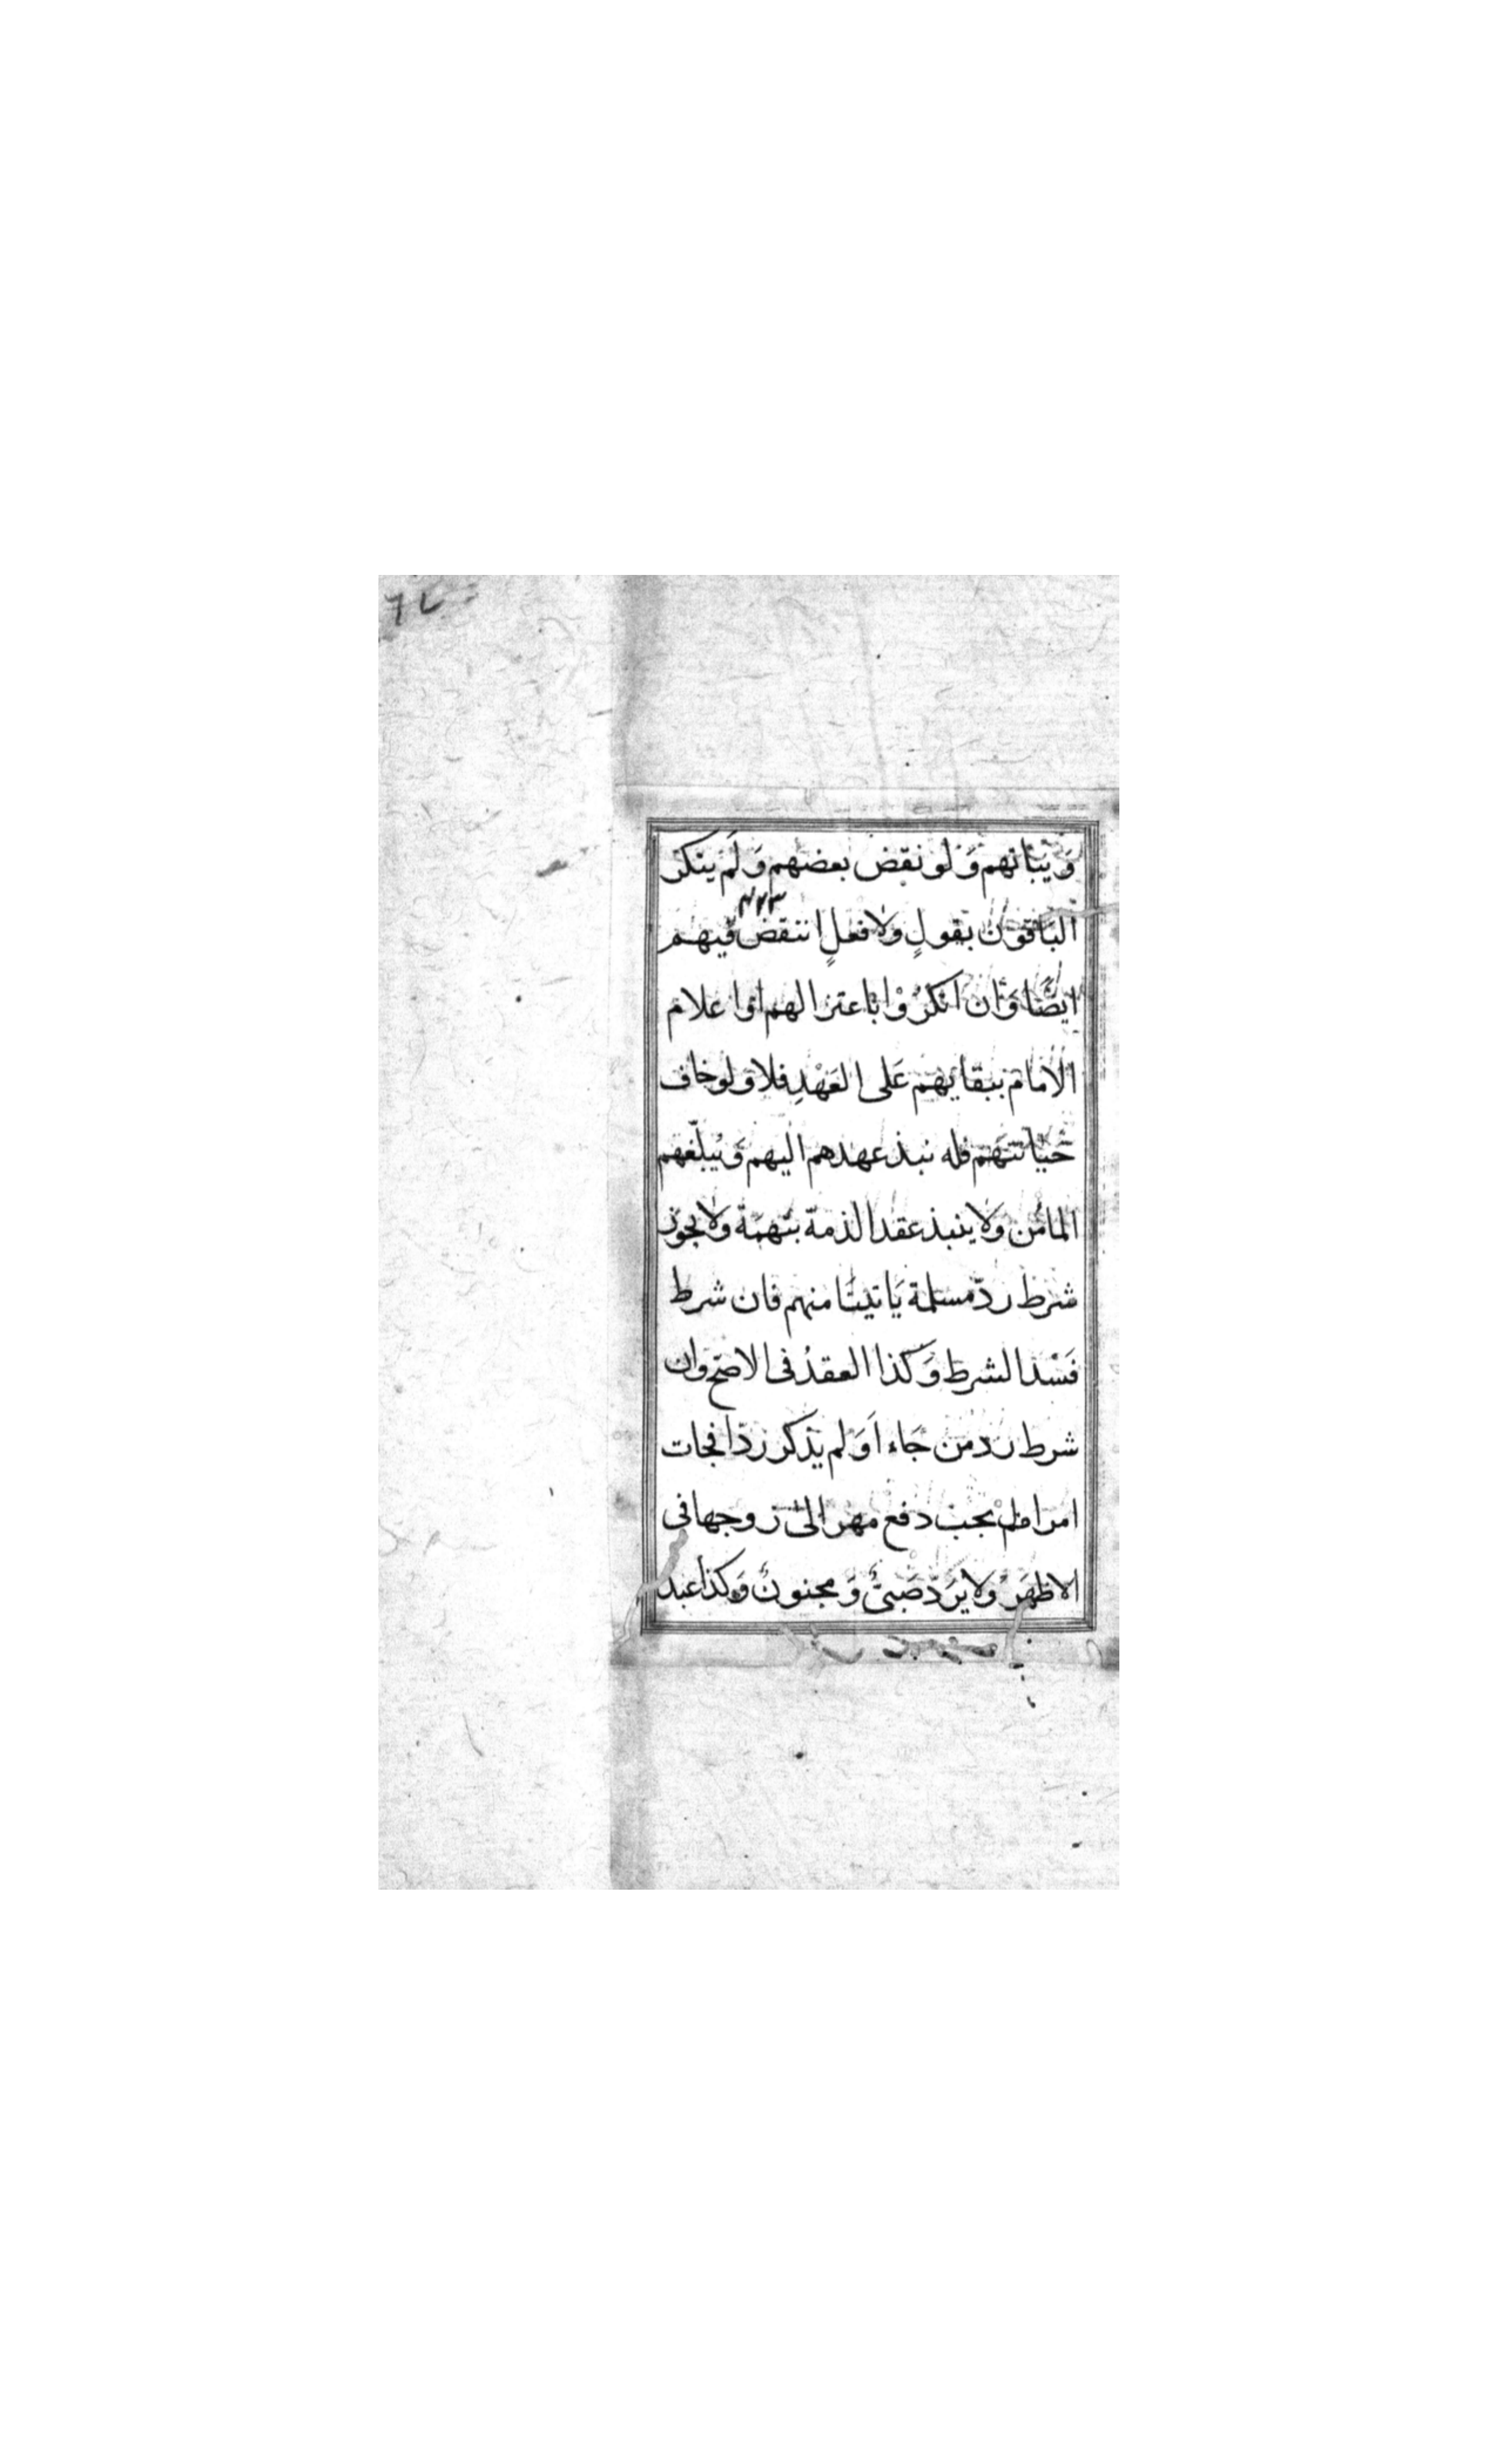 وَيبَاتهم وَلو نقض بعضهم وَلَم ينكر
الباقون بقولٍ ولا فعلٍ انتقض فيهم
ايضًا وَان انكرُوْا باعتزالهم او اعلام
الامام ببقايهم عَلى العَهْدِ فلا ولو خاف
خيانتهم فله نبذ عهدهم اليهم وَيُبلّغهم
المامن ولا ينبذ عقد الذمة بتهمَة ولا يجوز
شرط ردّ مسلمة يَاتينَا منهم فان شرط
فسَد الشرط وَكذا العقدُ فى الاصَح وان
شرط رد من جَاء اَوَ لم يذكر ردّا فجات
امراة لم يجب دفع مهر الى زوجها فى
الاظهَر وَلا يَردّ صَبىّ وَ مجنون وَكذا عبد